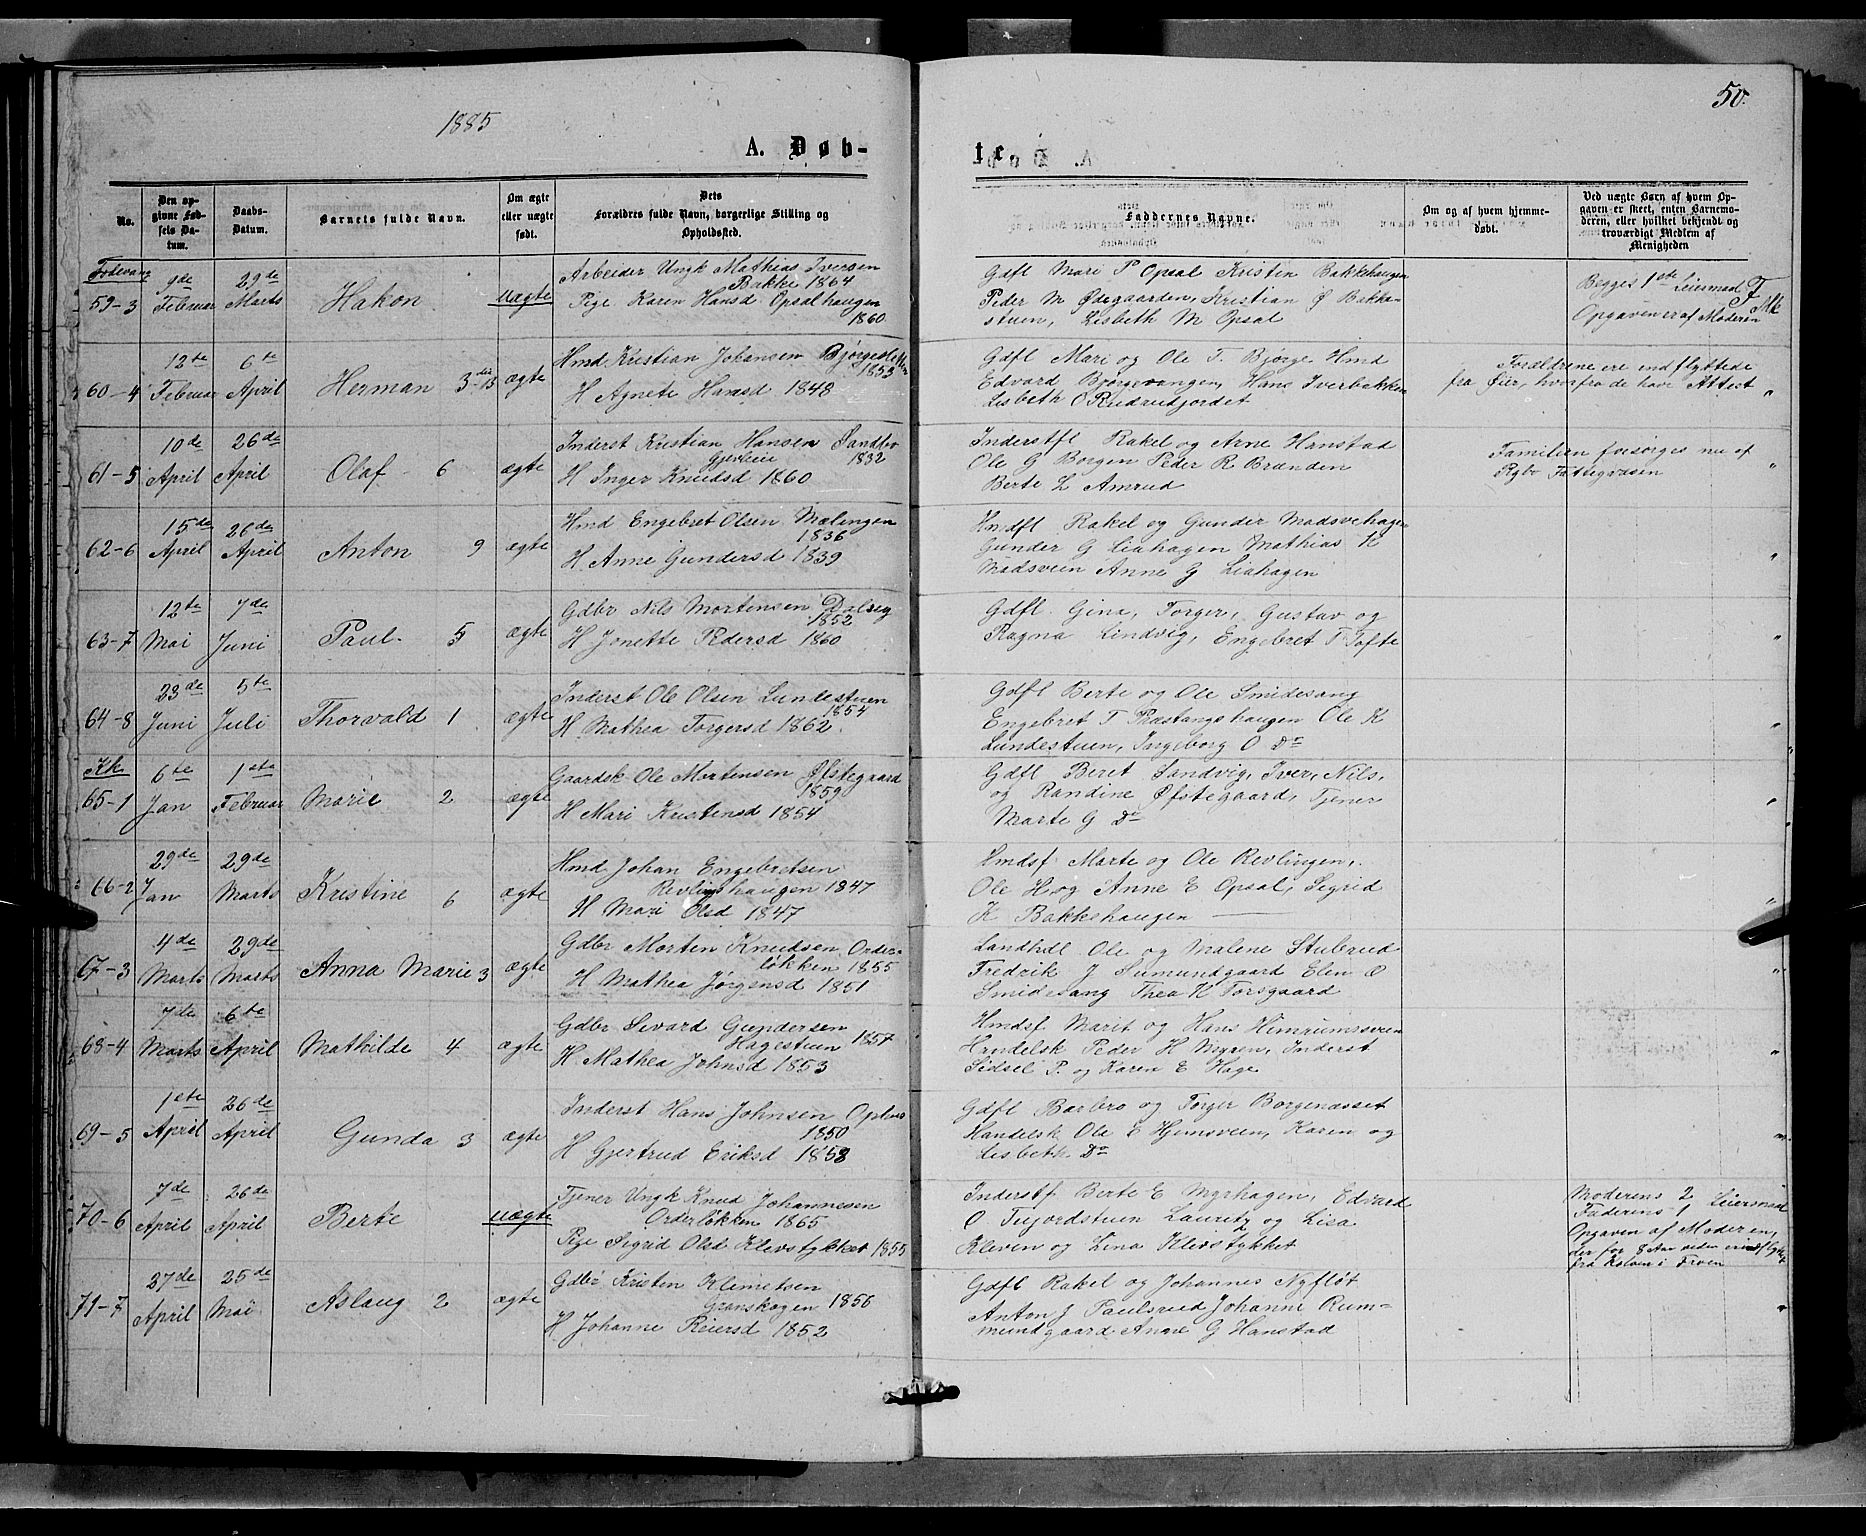 1885
50.
A. Døb-
te.
No.
Den op-
givne Fød-
sels Da-
tum.
Daabs-
Datum.
Barnets fulde Navn.
Om ægte
eller uægte
født.
Dets
Forældres fulde Navn, borgerlige Stilling og
Opholdssted.
Faddernes Navne.
Om og af hvem hjemme-
døbt.
Ved uægte Børn af hvem Op-
gaven er skeet, enten Barnemo-
deren, eller hvilket bekjendt og
troværdigt Medlem af
Menigheden
Fodvang
59-3
9de
Februar
29de
Marts
Hakon
uægte
Arbeider Ungk Mathias Iversen
Bakke 1864
Pige Karen Hansd Opsalhaugen
1860
Gdfl Mari P Opsal Kristin Bakkehaugen
Peder M Ødegaarden, Kristian Ø Bakke-
stuen, Lisbeth M Opsal
Begges 1ste Leiermaal
Opgaven er af Moderen
60-4
12te
Februar
6te
April
Herman 3-
ægte
Hmd Kristian Johansen Bjørgeslökken
1853
H Agnete Hansd 1848
Gdfl Mari og Ole T. Bjørge Hmd
Edvard Bjørgevangen, Hans Iverbakken
Lisbeth O Rudrudjordet
Forældrene ere indflyttede
fra Øier, hvorfra de have Attest
"
61-5
10de
April
26de
April
Olaf 6
ægte
Inderst Kristian Hansen Sandbo
1832
H Inger Knudsd 1860
Inderstfl Rakel og Arne Hanstad
Ole G Borgen Peder R Brænden
Berte L Amrud
Familien forsørges nu af
Rgbo Fattigvæsen
"
62-6
15de
April
26de
April
Anton 9
ægte
Hmd Engebret Olsen Mælingen
1836
H Anne Gundersd 1839
Hmdfl Rakel og Gunder Madsvehagen
Gunder G Liahagen Mathias K
Madsveen Anne G Liahagen
"
63-7
12te
Mai
7de
Juni
Paul 5
ægte
Gdbr Nils Mortensen Dalseg
1852
H Jonette Pedersd 1860
Gdfl. Gina, Torger, Gustav og
Ragna Lindvig, Engebret T Tofte
"
64-8
23de
Juni
5te
Juli
Thorvald 1
ægte
Inderst Ole Olsen Lundestuen
1854
H Mathea Torgersd 1862
Gdfl Berte og Ole Smidesang
Engebret T Præstangshaugen Ole K
Lundestuen, Ingeborg O Do
"
Kk.
65-1
6te
Jan
1ste
Februar
Marie 2
ægte
Gaardsk Ole Mortensen Øfstegaard
1859
H Mari Kristensd 1854
Gdfl Beret Sandvig, Iver, Nils,
og Randine Øfstegaard, Tjener
Marte G Do
"
66-2
29de
Jan
29de
Marts
Kristine 6
ægte
Hmd Johan Engebretsen
Revlingshaugen 1847
H Mari Olsd 1847
Hmdsf Marte og Ole Revlingen,
Ole H og Anne E Opsal, Sigrid
K Bakkehaugen
"
67-3
4de
Marts
29de
Marts
Anna Marie 3
ægte
Gdbr Morten Knudsen Order-
løkken 1855
H Mathea Jørgensd 1851
Landhdl Ole og Malene Stubrud
Fredrik J Sumundgaard Elen O
Smidesang Thea K Forsgaard
"
68-4
7de
Marts
6te
April
Mathilde 4
ægte
Gdbr Sivard Gundersen
Hagestuen 1857
H Mathea Johnsd 1853
Hmdsf Marit og Hans Himrumsveen
Handelsk Peder H Myren, Inderst
Sidsel P. og Karen E Hage
"
69-5
1ste
April
26de
April
Gunda 3
ægte
Inderst Hans Johnsen
1850
H Gjertrud Eriksd 1853
Gdfl Barbro og Torger Borgenæsset
Handelsk Ole E Hjemsveen, Karen og
Lisbeth Do
70-6
7de
April
26de
April
Berte
uægte
Tjener Ungk Knud Johannesen
Orderløkken 1865
Pige Sigrid Olsd Klevstykket 1855
Inderstf Berte E Myrhagen, Edvard
O Tujordstuen Lauritz og Lisa
Kleven og Lina Klevstykket
Moderens 2
Faderens 1 Leiermaal
Opgaven af Moderen,
der for 8 Aar siden er indflyttet
fra Kolven i Froen
71-7
27de
April
25de
Mai
Aslaug 2
ægte
Gdbr Kristen Klemetsen
Granskogen 1856
H Johanne Reiersd 1852
Gdfl Rakel og Johannes Nyfløt
Anton J Paulsrud Johanne Rum-
mundgaard Anne G Hanstad
"